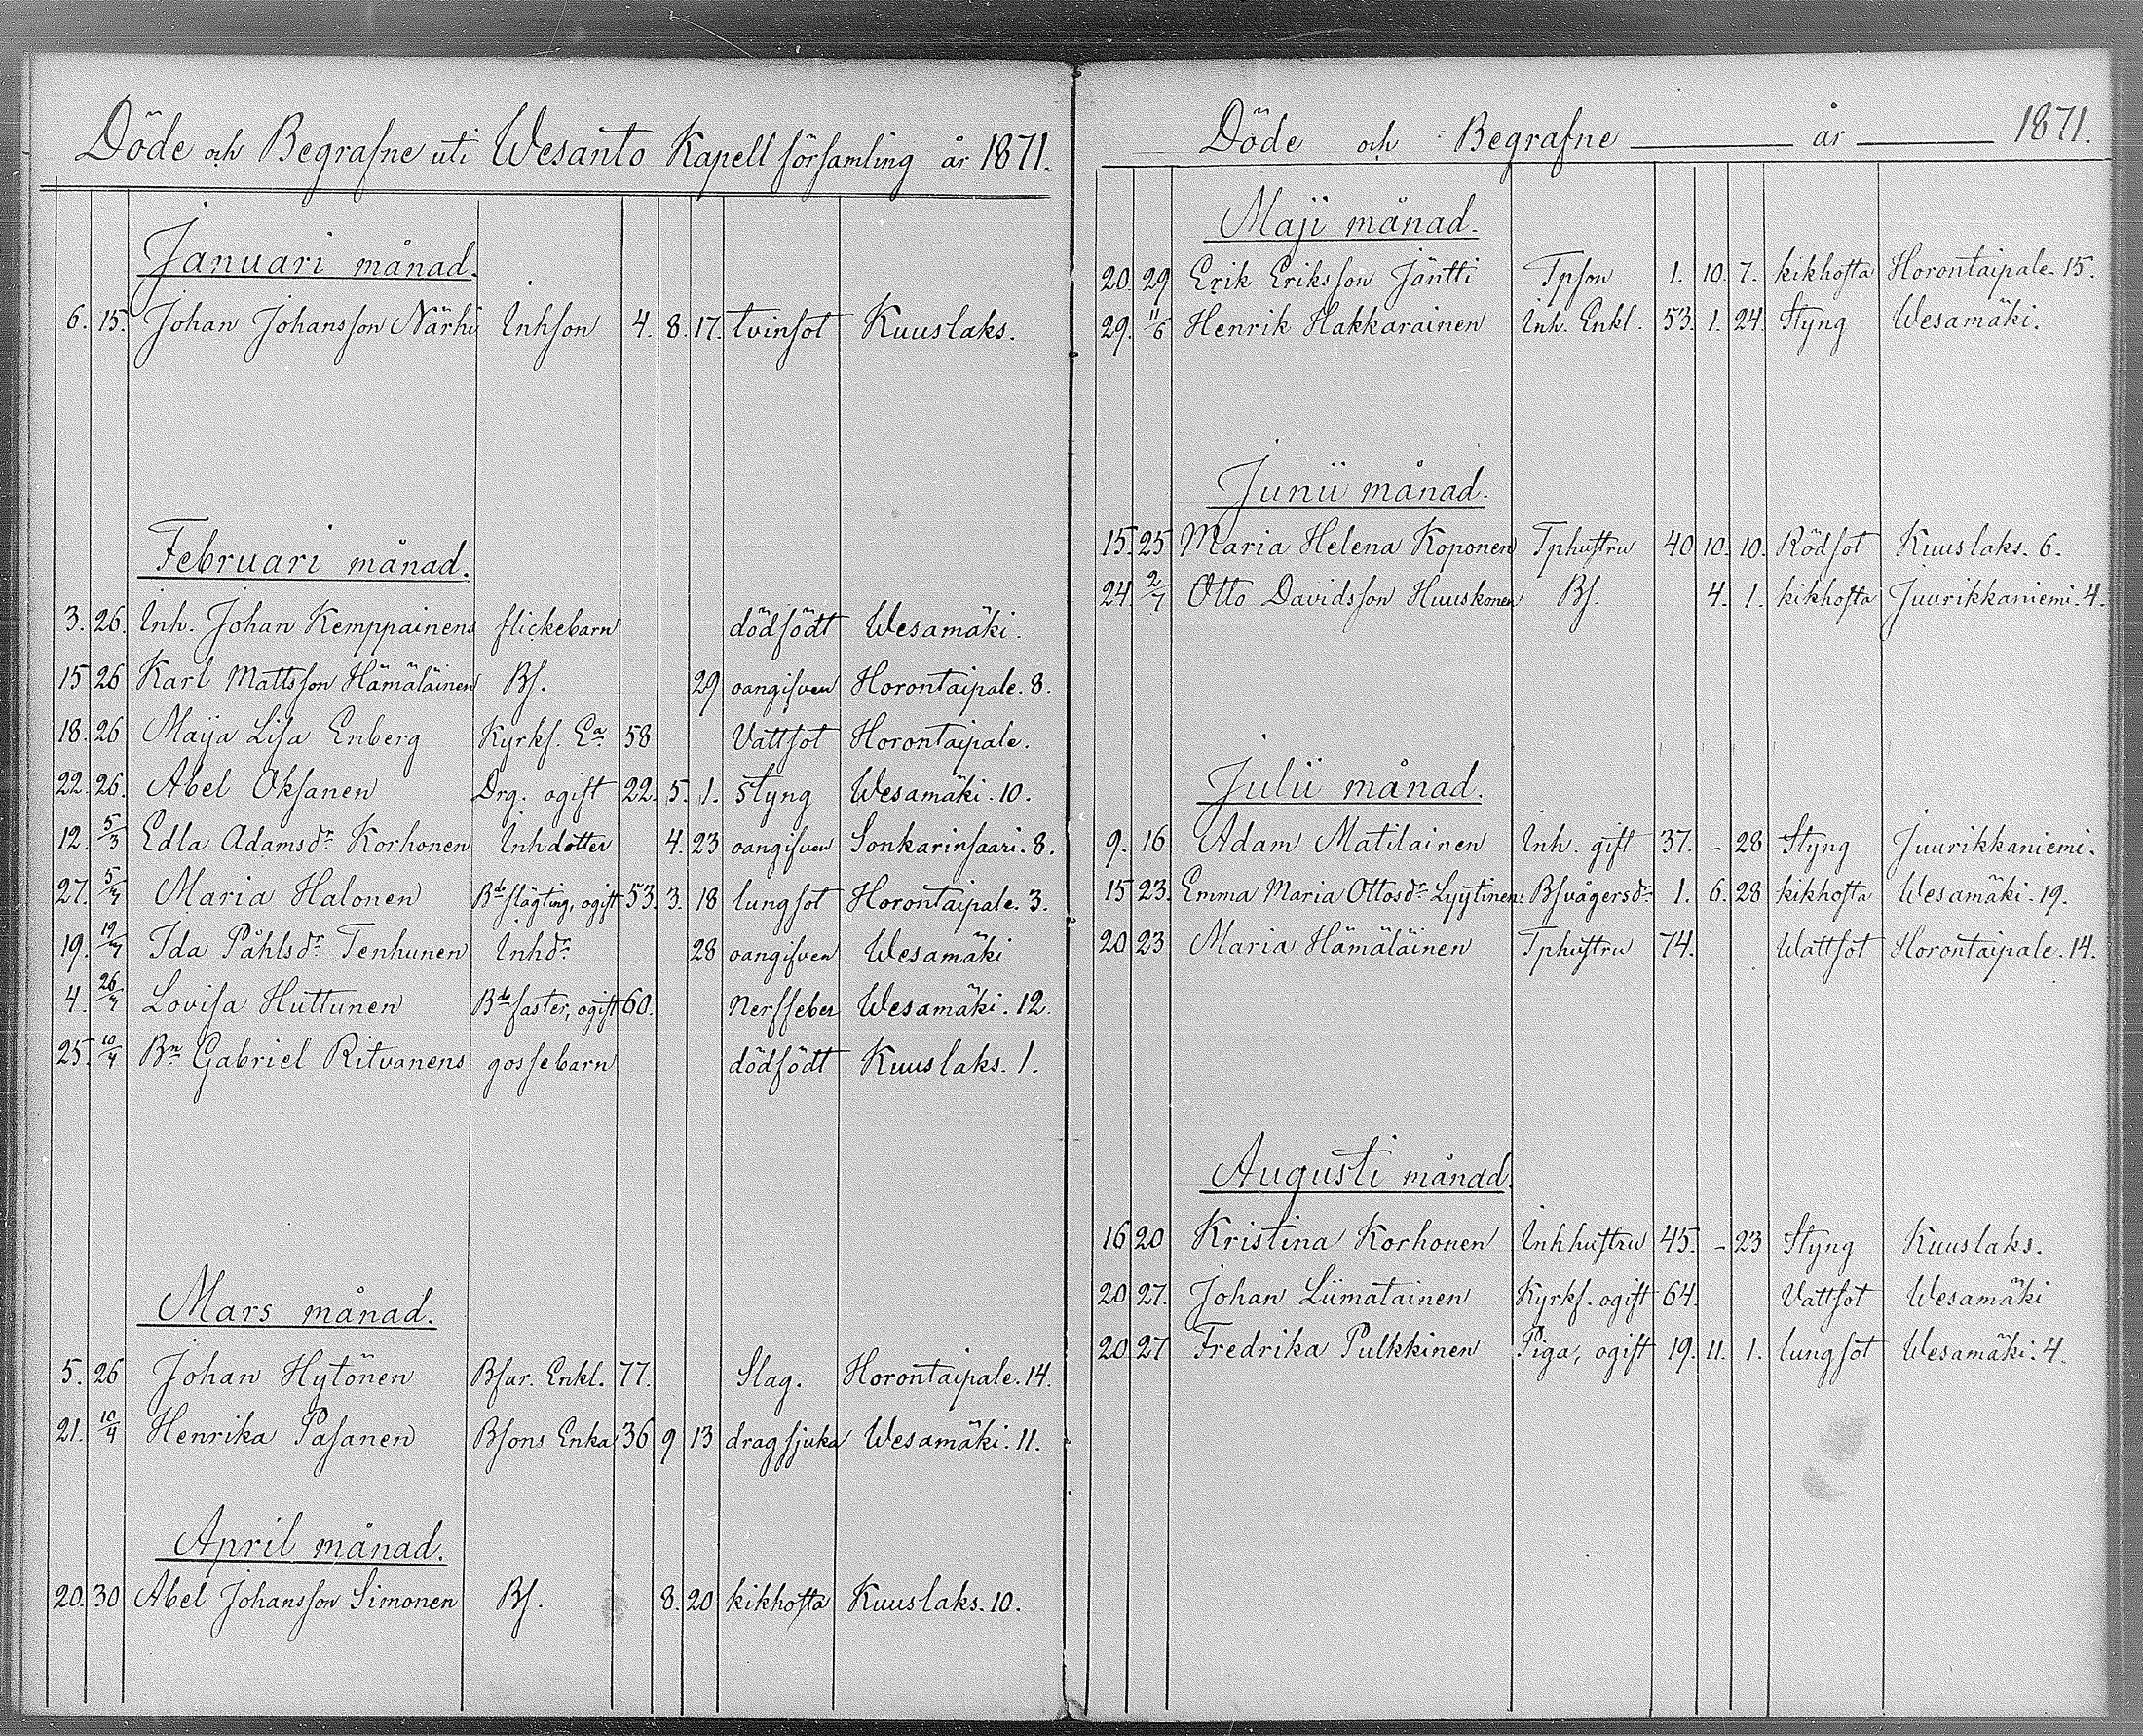 Döde och Begrafne uti Wesanto Kapellförsamling år 1871.
Januari månad.
6. 15. Johan Johansson Närhi Inhson 4. 8. 17. tvinsot Kuuslaks.
Februari månad.
3. 26. Inh. Johan Kemppainens flickebarn dödfödt Wesamäki.
15 26 Karl Mattsson Hämäläinen Bs. 29 oangifven Horontaipale. 8.
18. 26 Maija Lisa Enberg Kyrks. Ea 58 Vattsot Horontaipale.
22. 26. Abel Oksanen Drg. ogift 22. 5. 1. styng Wesamäki. 10.
12. 5/3 Edla Adamsdr Korhonen Inhdotter 4. 23 oangifven Sonkarinsaari. 8.
27. 5/3 Maria Halonen Bde slägting, ogift 53. 3. 18 lungsot Horontaipale. 3.
19. Ida Påhlsdr Tenhunen Inhdr 28 oangifven Wesamäki
4. Lovisa Huttunen Bde faster, ogift 60. Nerffeber Wesamäki. 12.
25. 10/4 Bn Gabriel Ritvanens gossebarn dödfödt Kuuslaks. 1.
Mars månad.
5. 26 Johan Hytönen Bfar. Enkl. 77. Slag. Horontaipale. 14.
21. 10/4 Henrika Pasanen Bsons Enka 36 9 13 dragsjuka Wesamäki. 11.
April månad.
20. 30 Abel Johansson Simonen Bs. 8. 20 kikhosta Kuuslaks. 10.
Döde och Begrafne år 1871.
Maji månad.
20. 29 Erik Eriksson Jäntti Tpson 1. 10. 7. kikhosta Horontaipale. 15.
29. 11/6 Henrik Hakkarainen Inh. Enkl. 53. 1. 24. Styng Wesamäki.
Junii månad.
15. 25 Maria Helena Koponen Tphustru 40 10. 10. Rödsot Kuuslaks. 6.
24. 2/7 Otto Davidsson Huuskonen Bs. 4. 1. kikhosta Juurikkaniemi. 4.
Julii månad.
9. 16 Adam Matilainen Inh. gift 37. - 28 Styng Juurikkaniemi.
15 23. Emma Maria Ottosdr Lyytinen Bsvågersdr 1. 6. 28 kikhosta Wesamäki. 19.
20 23 Maria Hämäläinen Tphustru 74. Wattsot Horontaipale. 14.
Augusti månad.
16 20 Kristina Korhonen Inhhustru 45. - 23 Styng Kuuslaks.
20 27. Johan Liimatainen Kyrks. ogift 64. Vattsot Wesamäki
20 27 Fredrika Pulkkinen Piga, ogift 19. 11. 1. lungsot Wesamäki. 4.